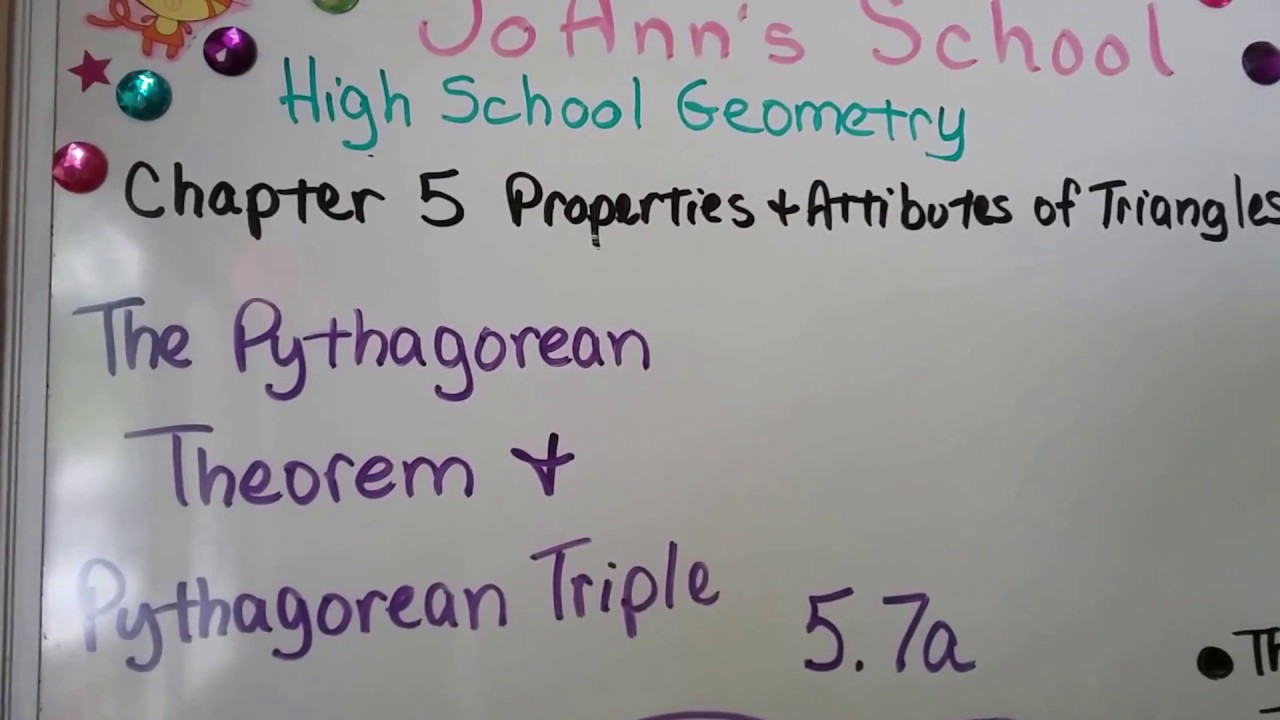 JoAnn's School
High School Geometry
Chapter 5 Properties + Attibutes of Triangles
The Pythagorean
Theorem +
Pythagorean Triple 5.7a